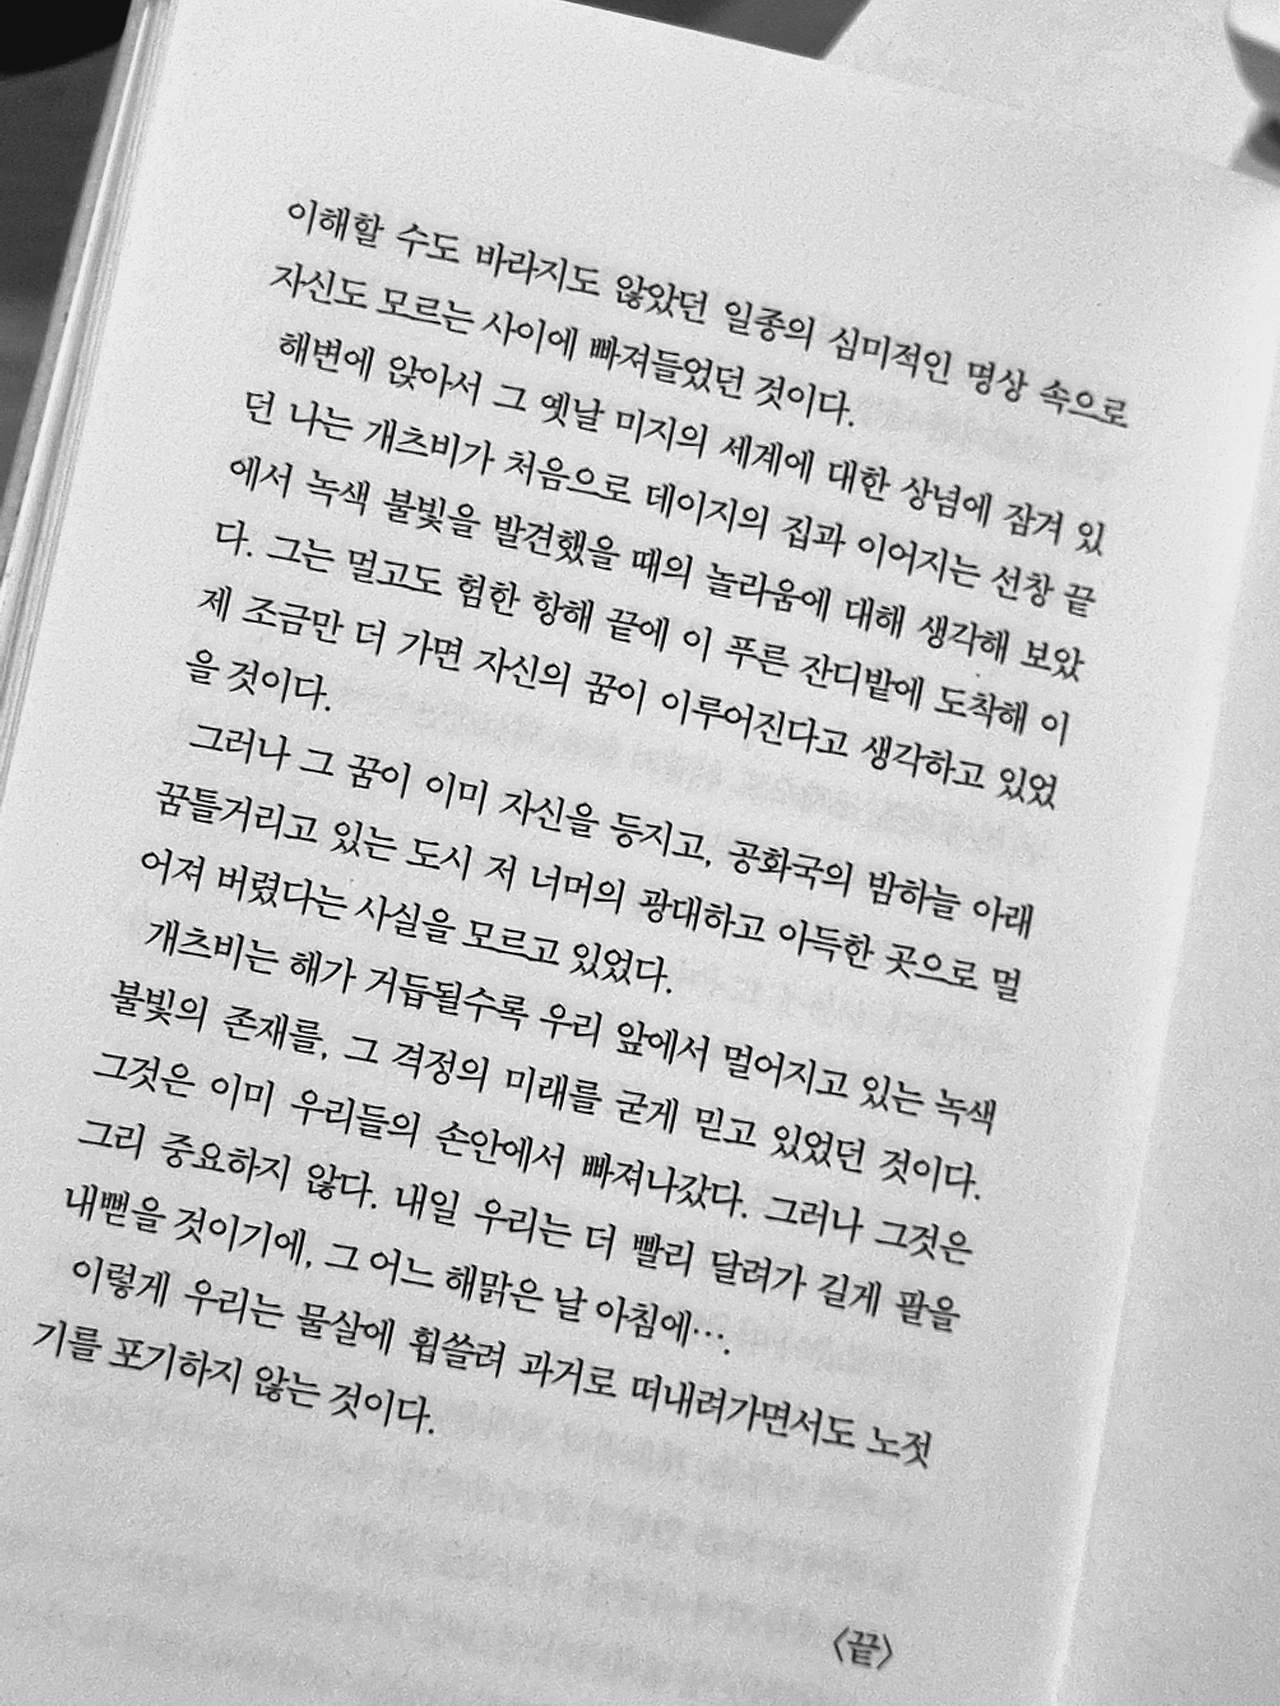 이해할 수도 바라지도 않았던 일종의 심미적인 명상 속으로
자신도 모르는 사이에 빠져들었던 것이다.
해변에 앉아서 그 옛날 미지의 세계에 대한 상념에 잠겨 있
던 나는 개츠비가 처음으로 데이지의 집과 이어지는 선창 끝
에서 녹색 불빛을 발견했을 때의 놀라움에 대해 생각해 보았
다. 그는 멀고도 험한 항해 끝에 이 푸른 잔디밭에 도착해 이
제 조금만 더 가면 자신의 꿈이 이루어진다고 생각하고 있었
을 것이다.
그러나 그 꿈이 이미 자신을 등지고, 공화국의 밤하늘 아래
꿈틀거리고 있는 도시 저 너머의 광대하고 아득한 곳으로 멀
어져 버렸다는 사실을 모르고 있었다.
개츠비는 해가 거듭될수록 우리 앞에서 멀어지고 있는 녹색
불빛의 존재를, 그 격정의 미래를 굳게 믿고 있었던 것이다.
그것은 이미 우리들의 손안에서 빠져나갔다. 그러나 그것은
그리 중요하지 않다. 내일 우리는 더 빨리 달려가 길게 팔을
내뻗을 것이기에, 그 어느 해맑은 날 아침에….
이렇게 우리는 물살에 휩쓸려 과거로 떠내려가면서도 노젓
기를 포기하지 않는 것이다.
〈끝〉